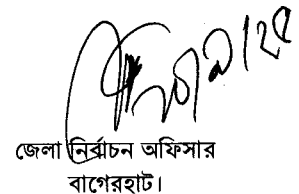 জেলা নির্বাচন অফিসার
বাগেরহাট।